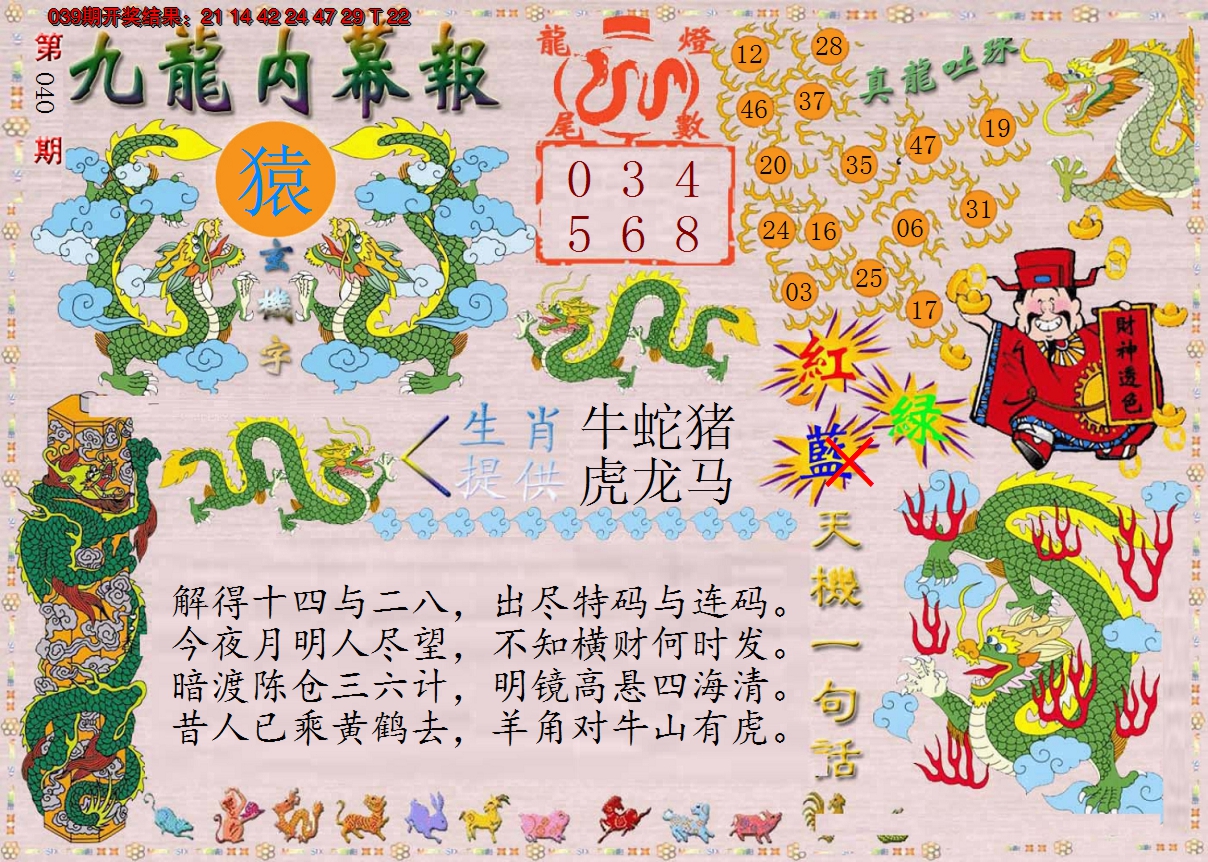 039期开奖结果：21 14 42 24 47 29 T 22
第 040 期
九龍内幕報
猿
玄機字
龍燈尾數
0 3 4
5 6 8
真龍吐珠
12
28
46
37
47
19
20
35
24
16
06
31
03
25
17
財神透色
紅
綠
藍
生肖 牛蛇猪
提供 虎龙马
天機一句话
解得十四与二八，出尽特码与连码。
今夜月明人尽望，不知横财何时发。
暗渡陈仓三六计，明镜高悬四海清。
昔人已乘黄鹤去，羊角对牛山有虎。